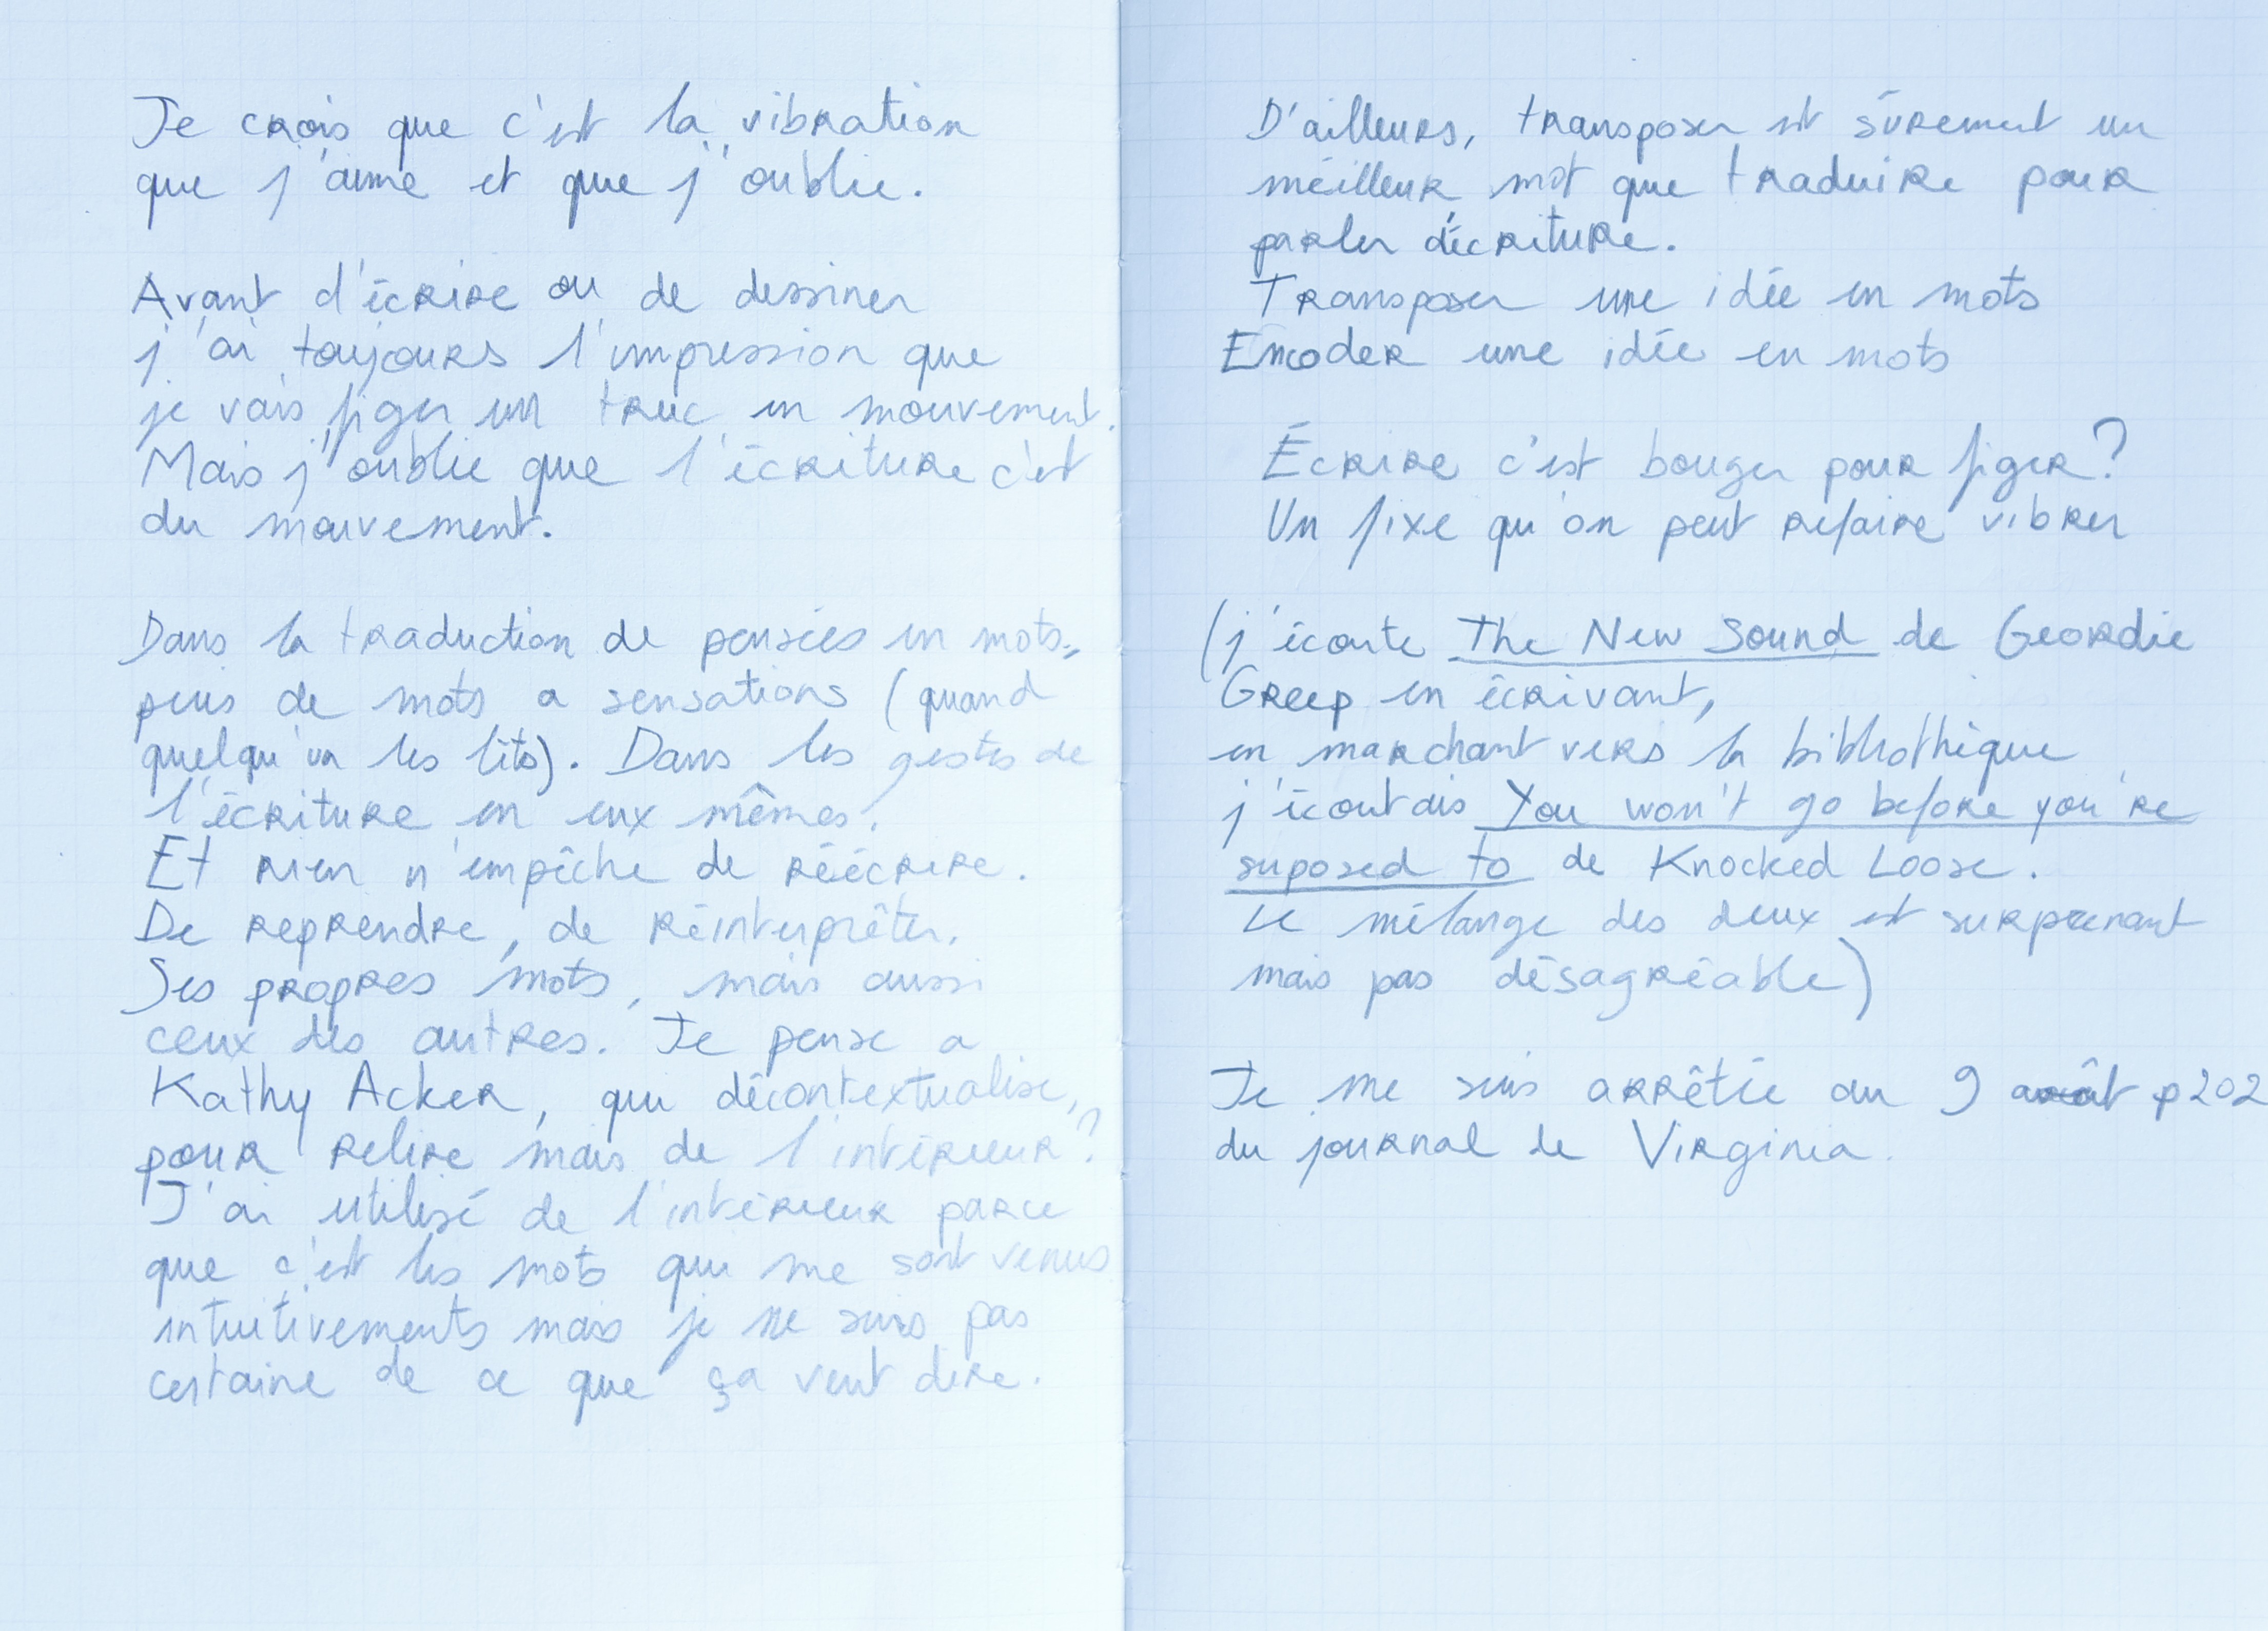 Je crois que c'est la vibration
que j'aime et que j'oublie.
Avant d'écrire ou de dessiner
j'ai toujours l'impression que
je vais figer un truc en mouvement.
Mais j'oublie que l'écriture c'est
du mouvement.
Dans la traduction de pensées en mots,
puis de mots a sensations (quand
quelqu'un les lits). Dans les gestes de
l'écriture en eux mêmes.
Et rien n'empêche de réécrire.
De reprendre, de réinterprêter.
Ses propres mots, mais aussi
ceux des autres. Je pense a
Kathy Acker, qui décontextualise,
pour relire mais de l'intérieur ?
J'ai utilisé de l'intérieur parce
que c'est les mots qui me sont venus
intuitivements mais je ne suis pas
certaine de ce que ça veut dire.
D'ailleurs, transposer est sûrement un
meilleur mot que traduire pour
parler d'écriture.
Transposer une idée en mots
Encoder une idée en mots
Écrire c'est bouger pour figer ?
Un fixe qu'on peut refaire vibrer
(j'écoute The New Sound de Geordie
Greep en écrivant,
en marchant vers la bibliothèque
j'écoutais You won't go before you're
suposed to de Knocked Loose.
Le mélange des deux est surprenant
mais pas désagréable)
Je me suis arrêtée au 9 août p202
du journal de Virginia.